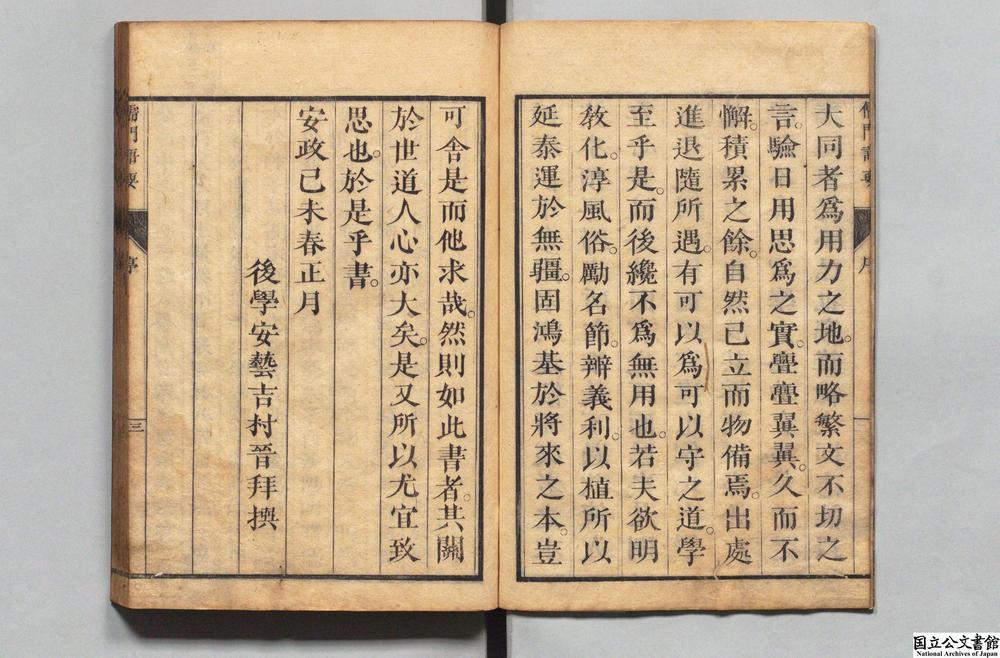 大同者爲用力之地。而略繁文不切之
言。驗日用思爲之實。亹亹翼翼。久而不
懈。積累之餘。自然己立而物備焉。出處
進退隨所遇。有可以爲可以守之道。學
至乎是。而後纔不爲無用也。若夫欲明
敎化。淳風俗。勵名節。辨義利。以植所以
延泰運於無疆。固鴻基於將來之本。豈
可舍是而他求哉。然則如此書者。其關
於世道人心亦大矣。是又所以尤宜致
思也。於是乎書。
安政己未春正月
後學安藝吉村晉拜撰
儒門語要
序
三
国立公文書館
National Archives of Japan